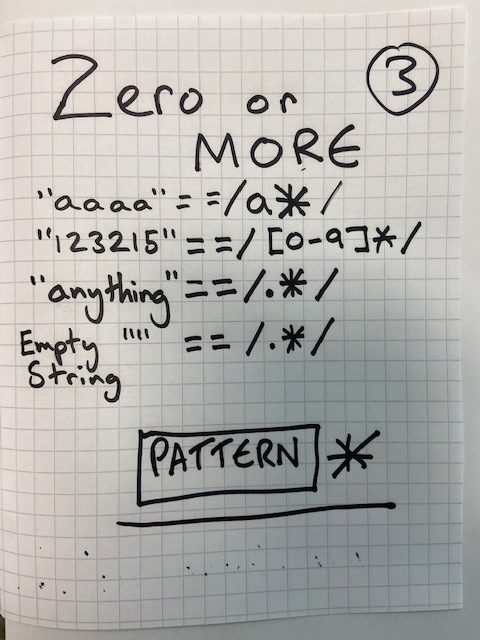 Zero or ③
MORE
"aaaa" == /a*/
"123215" == /[0-9]*/
"anything" == /.*/
Empty "" == /.*/
String
PATTERN *